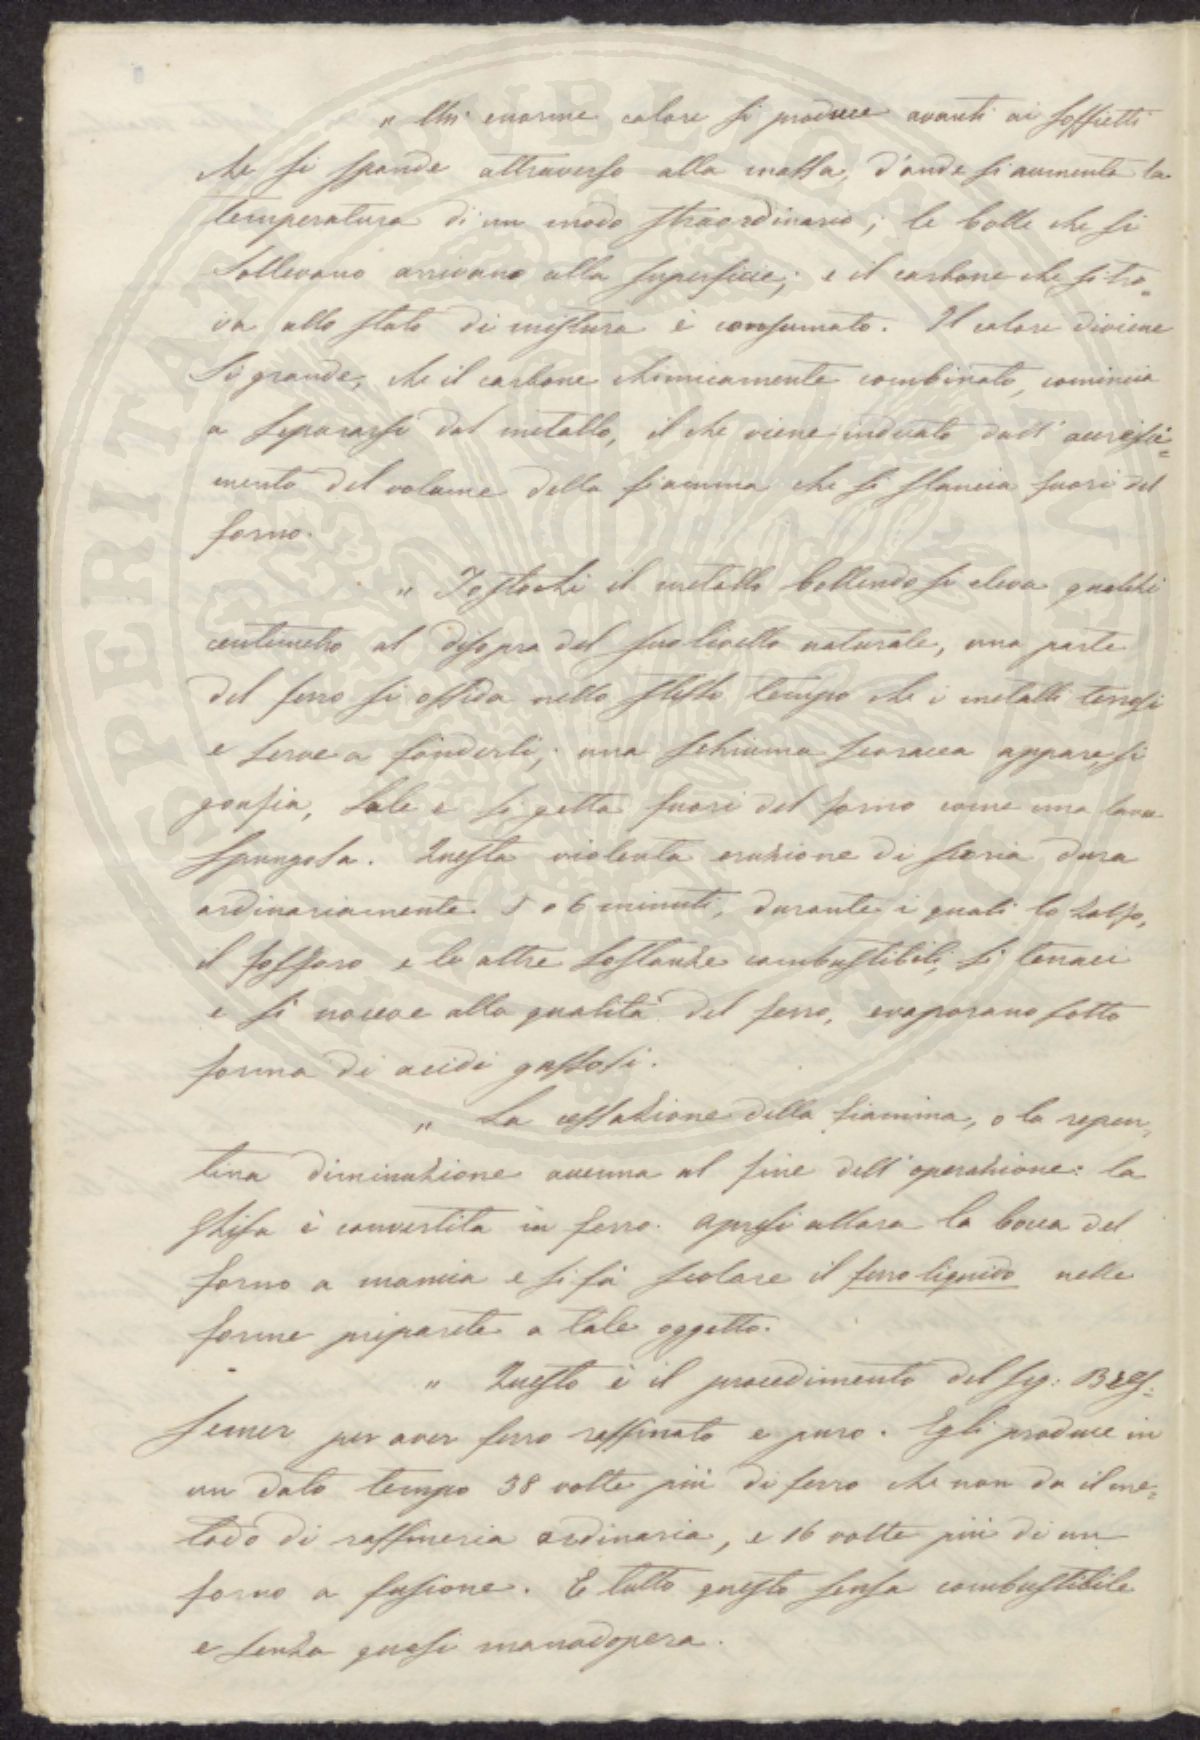 „ Un' enorme calore si produce avanti ai soffietti
che si spande attraverso alla massa, d'onde si aumenta la
temperatura di un modo straordinario; le bolle che si
sollevano arrivano alla superficie; e il carbone che si tro=
va allo stato di mistura è consumato. Il calore diviene
sì grande, che il carbone chimicamente combinato, comincia
a separarsi dal metallo, il che viene indicato dall' accresci=
mento del volume della fiamma che si slancia fuori del
forno.
„ Tostochè il metallo bollendo si eleva qualche
centimetro al disopra del suo livello naturale, una parte
del ferro si ossida nello stesso tempo che i metalli terrosi
e serve a fonderli; una schiuma scoracea appare, si
gonfia, sale e si getta fuori del forno come una lava
spungosa. Questa violenta eruzione di scoria dura
ordinariamente 5 o 6 minuti, durante i quali lo zolfo,
il fosforo e le altre sostanze combustibili, sì tenaci
e sì nocive alla qualità del ferro, evaporano sotto
forma di acidi gassosi.
„ La cessazione della fiamma, o la repen=
tina diminuzione accenna al fine dell' operazione: la
ghisa è convertita in ferro. Apresi allora la bocca del
forno a mancia e si fà scolare il ferro liquido nelle
forme preparate a tale oggetto.
„ Questo è il procedimento del Sig: Bes=
semer per aver ferro raffinato e puro. Egli produce in
un dato tempo 38 volte più di ferro che non da il me=
todo di raffineria ordinaria, e 16 volte più di un
forno a fusione. E tutto questo senza combustibile
e senza quasi manodopera.
PROSPERITATI PUBLICAE AUGENDAE